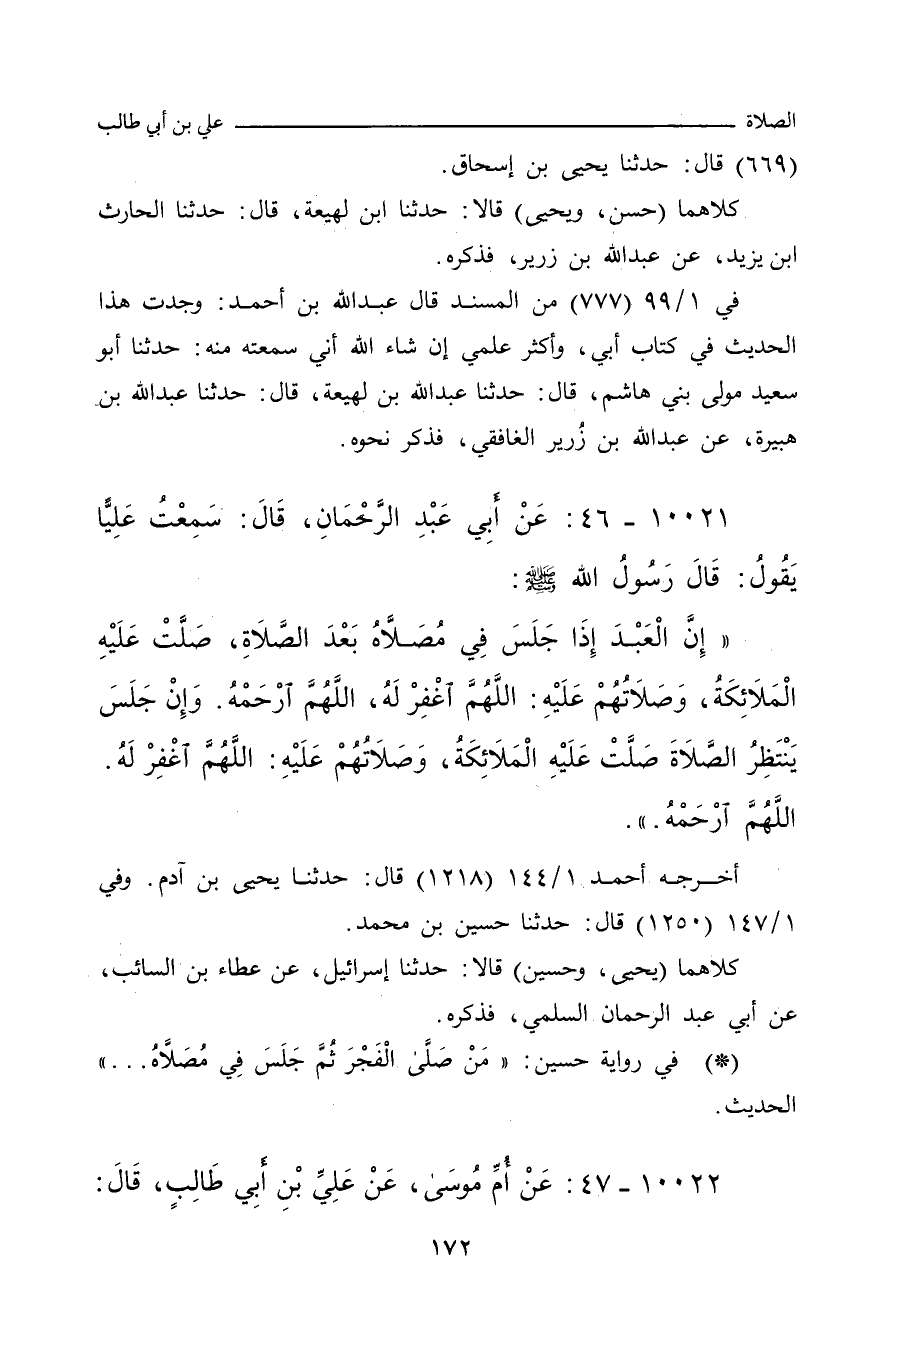 الصلاة علي بن أبي طالب
(٦٦٩) قال: حدثنا يحيى بن إسحاق.
كلاهما (حسن، ويحيى) قالا: حدثنا ابن لهيعة، قال: حدثنا الحارث
ابن يزيد، عن عبدالله بن زرير، فذكره.
في ٩٩/١ (٧٧٧) من المسند قال عبدالله بن أحمد: وجدت هذا
الحديث في كتاب أبي، وأكثر علمي إن شاء الله أني سمعته منه: حدثنا أبو
سعيد مولى بني هاشم، قال: حدثنا عبدالله بن لهيعة، قال: حدثنا عبدالله بن
هبيرة، عن عبدالله بن زُرير الغافقي، فذكر نحوه.
١٠٠٢١ - ٤٦: عَنْ أَبِي عَبْدِ الرَّحْمَانِ، قَالَ: سَمِعْتُ عَلِيًّا
يَقُولُ: قَالَ رَسُولُ الله ﷺ:
« إِنَّ الْعَبْدَ إِذَا جَلَسَ فِي مُصَلَّاهُ بَعْدَ الصَّلَاةِ، صَلَّتْ عَلَيْهِ
الْمَلَائِكَةُ، وَصَلَاتُهُمْ عَلَيْهِ: اللَّهُمَّ ٱغْفِرْ لَهُ، اللَّهُمَّ ٱرْحَمْهُ. وَإِنْ جَلَسَ
يَنْتَظِرُ الصَّلَاةَ صَلَّتْ عَلَيْهِ الْمَلَائِكَةُ، وَصَلَاتُهُمْ عَلَيْهِ: اللَّهُمَّ ٱغْفِرْ لَهُ.
اللَّهُمَّ ٱرْحَمْهُ.».
أخرجه أحمد ١٤٤/١ (١٢١٨) قال: حدثنا يحيى بن آدم. وفي
١٤٧/١ (١٢٥٠) قال: حدثنا حسين بن محمد.
كلاهما (يحيى، وحسين) قالا: حدثنا إسرائيل، عن عطاء بن السائب،
عن أبي عبد الرحمان السلمي، فذكره.
(*) في رواية حسين: « مَنْ صَلَّىٰ الْفَجْرَ ثُمَّ جَلَسَ فِي مُصَلَّاهُ...»
الحديث.
١٠٠٢٢ - ٤٧: عَنْ أُمِّ مُوسَىٰ، عَنْ عَلِيِّ بْنِ أَبِي طَالِبٍ، قَالَ:
١٧٢